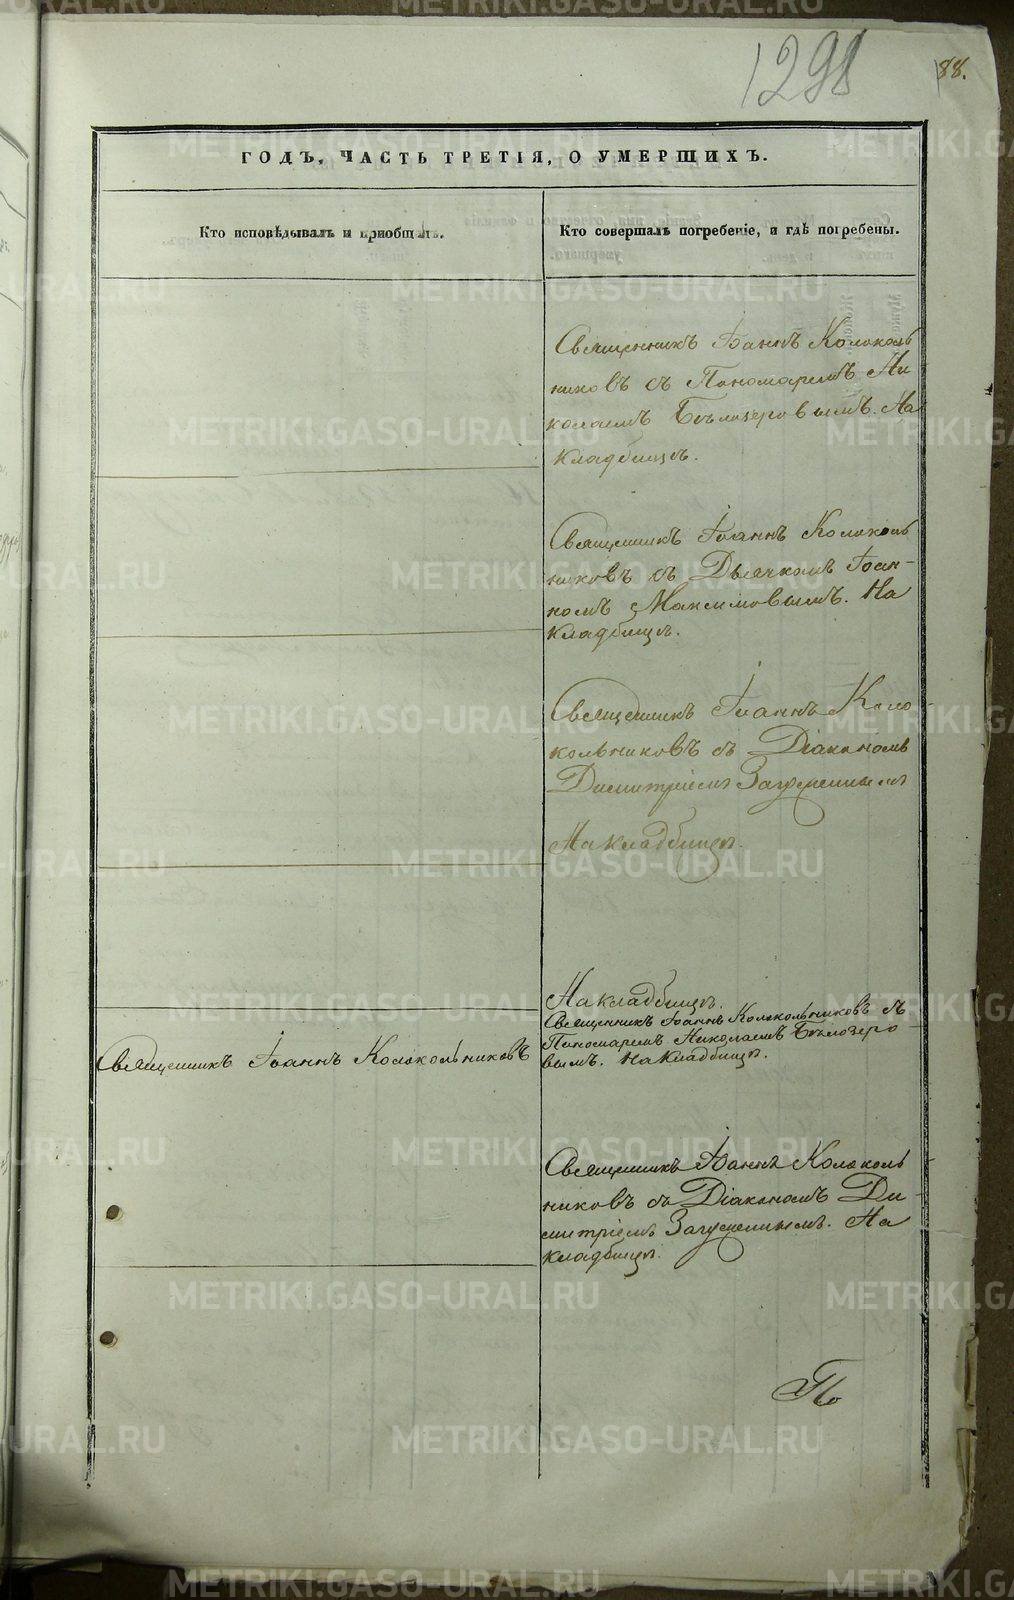 1298
188.
ГОДЪ, ЧАСТЬ ТРЕТІЯ, О УМЕРШИХЪ.
Кто исповѣдывалъ и пріобщалъ.
Кто совершалъ погребеніе, и гдѣ погребены.
Священникъ Іоаннъ Колоколь
никовъ съ Пономаремъ Ни
колаемъ Бѣлозеровымъ. На
кладбищѣ.
Священникъ Іоаннъ Колоколь
никовъ съ Дьячкомъ Іоан-
номъ Максимовымъ. На
кладбищѣ.
Священникъ Іоаннъ Коло-
кольниковъ съ Діакономъ
Димитріемъ
На кладбищѣ.
На кладбищѣ.
Священникъ Іоаннъ Колокольниковъ съ
Пономаремъ Николаемъ Бѣлозеро-
вымъ. На кладбищѣ.
Священникъ Іоаннъ Колокольниковъ
Священникъ Іоаннъ Колоколь
никовъ съ Діакономъ Ди-
митріемъ На
кладбищѣ.
По
METRIKI.GASO-URAL.RU